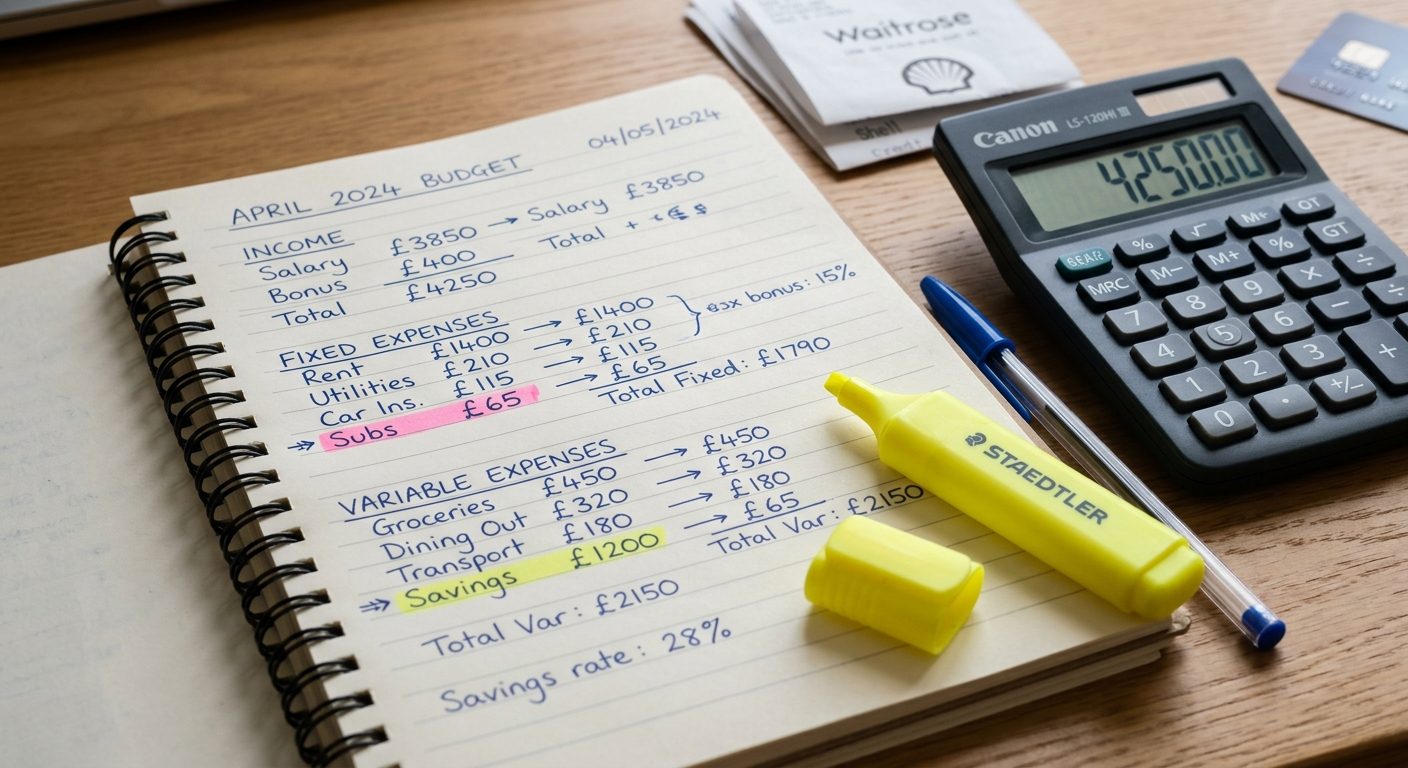 APRIL 2024 BUDGET 04/05/2024
INCOME
Salary £3850 → Salary £3850
Bonus £400 Total +
Total £4250
FIXED EXPENSES
Rent £1400 → £1400
Utilities £210 → £210 bonus: 15%
Car Ins. £115 → £115
⇒ Subs £65 → £65
Total Fixed: £1790
VARIABLE EXPENSES
Groceries £450 → £450
Dining Out £320 → £320
Transport £180 → £180
⇒ Savings £1200 → £65
Total Var: £2150
Total Var: £2150
Savings rate: 28%
Waitrose
Shell
Canon LS-120HI III
4250.00
% √ M+ OT
MRC M− M+ % GT
7 8 9 × − ÷ ÷
4 5 6 +
1 2 3 +/−
0 .
STAEDTLER